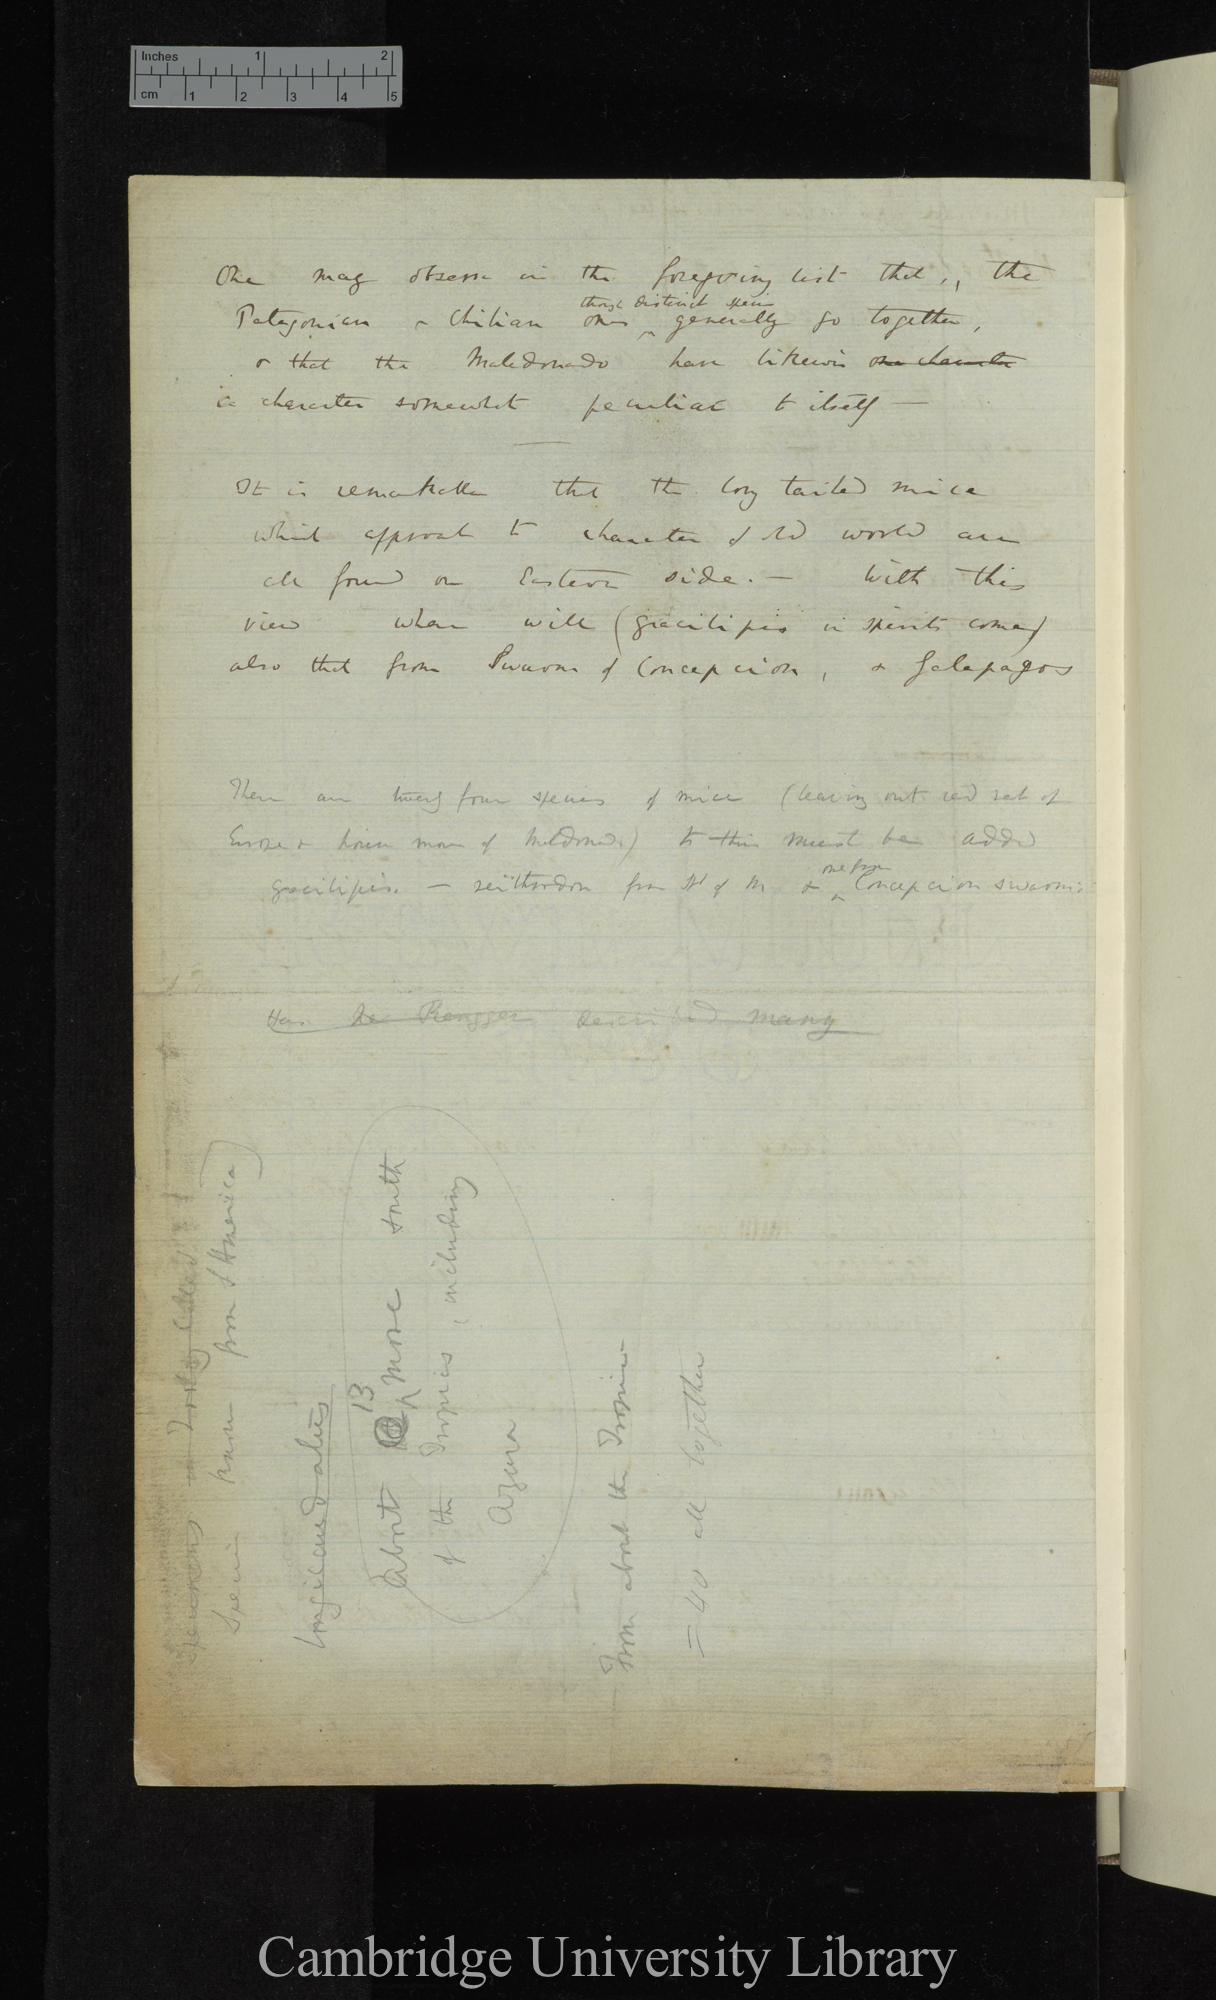 Inches 1 2
cm 1 2 3 4 5
One may observe in the foregoing list that, the
though distinct species
Patagonian & Chilian ones generally go together,
& that the Maldonado have likewise one character
a character somewhat peculiar to itself —
It is remarkable that the long tailed mice
which approach to character of old world are
all found on Eastern side. — With this
view where will (gracilipes in spirits come)
also that from Swarms of Concepcion, & Galapagos
There are twenty four species of mice (leaving out red rat of
Europe & house mouse of Maldonado) to this must be added
one from
gracilipes. — reithrodon from St of M & Concepcion swarms
Has de Rengger described many
Specimens
Species known from S America)
longicaudatus
13
About more south
of the Tropics, including
Azara
From about the Tropics
= 40 all together
Cambridge University Library